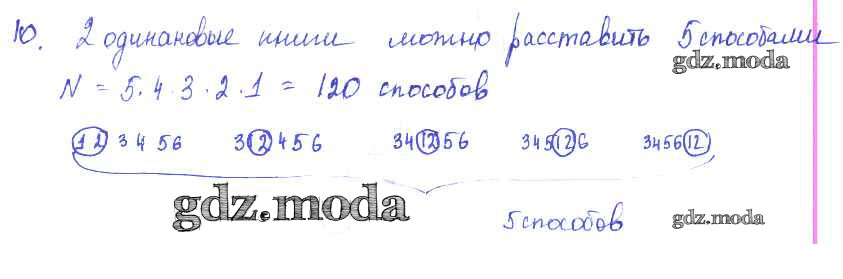 10. 2 одинаковые книги можно расставить 5 способами
gdz.moda
N = 5.4.3.2.1 = 120 способов
12 3 4 5 6 3 12 4 5 6 34 12 56 345 12 6 3456 12
gdz.moda
5 способов gdz.moda